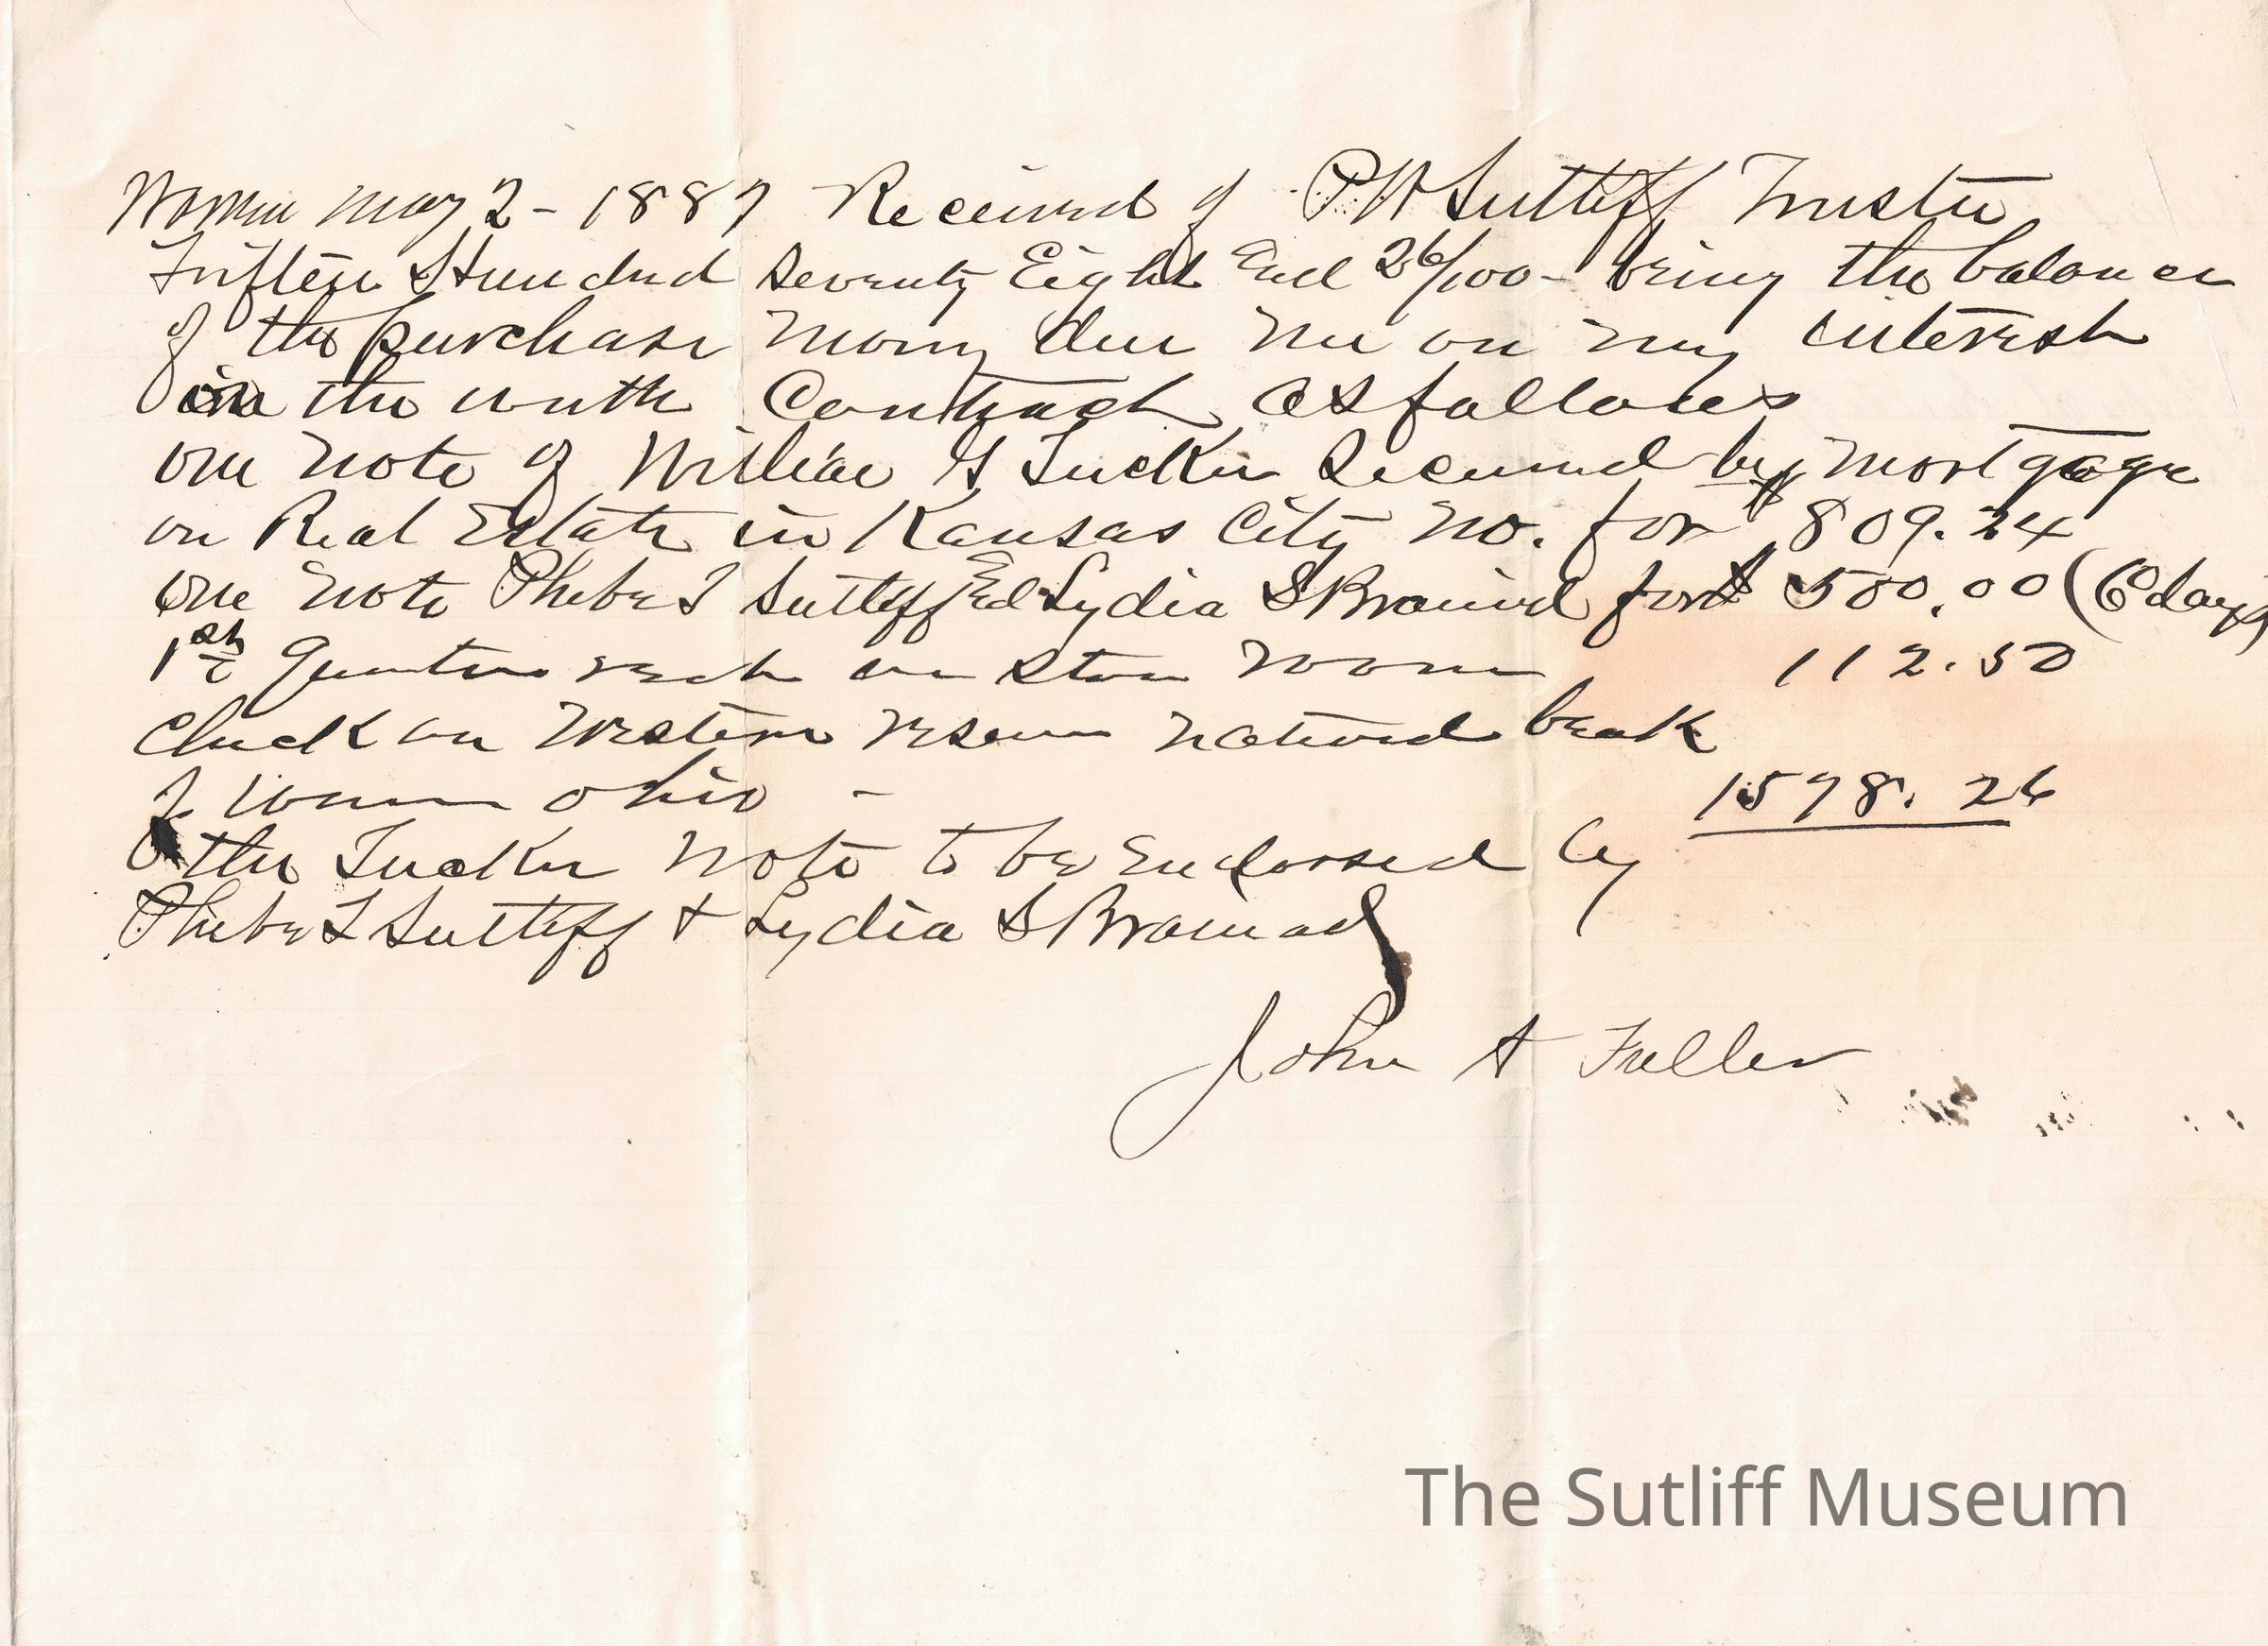 Warren May 2 - 1887 Received of P. W Sutliff Trustee
Fifteen Hundred Seventy Eight and 26/100 - being the balance
of the purchase money due me on my interest
in the with Contract as follows
one note of William G Tucker Secured by mortgage
on Real Estate in Kansas City Mo. for $809.24
one note Phebe T Sutliff and Lydia S Brainard for $500.00 (6 days
1st Quarter rent on store room 112.50
Check on Western reserve national bank
of Warren Ohio -
1578.26
the Tucker note to be endorsed by
Phebe T Sutliff + Lydia S Brainard
John A Fuller
The Sutliff Museum